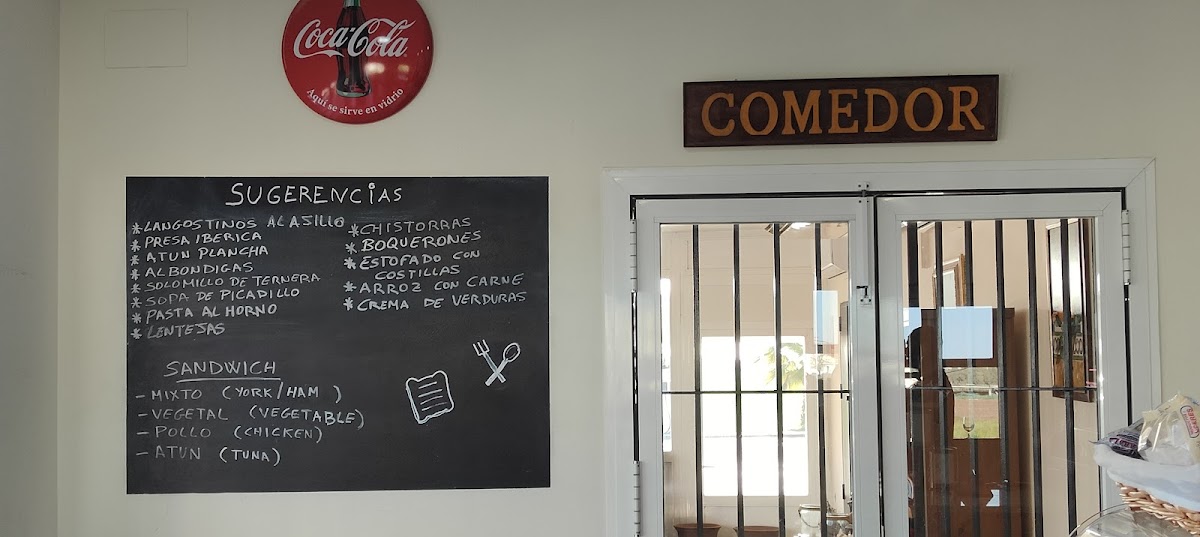 Coca-Cola
Aquí se sirve en vidrio
COMEDOR
SUGERENCIAS
* LANGOSTINOS AL AJILLO
* PRESA IBERICA
* ATUN PLANCHA
* ALBONDIGAS
* SOLOMILLO DE TERNERA
* SOPA DE PICADILLO
* PASTA AL HORNO
* LENTEJAS
* CHISTORRAS
* BOQUERONES
* ESTOFADO CON
COSTILLAS
* ARROZ CON CARNE
* CREMA DE VERDURAS
SANDWICH
- MIXTO (YORK/HAM)
- VEGETAL (VEGETABLE)
- POLLO (CHICKEN)
- ATUN (TUNA)